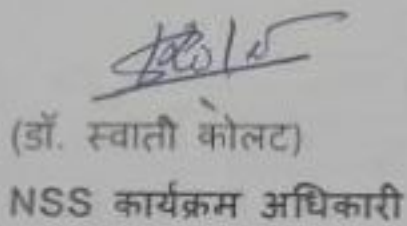 (डॉ. स्वाती कोलट)
NSS कार्यक्रम अधिकारी